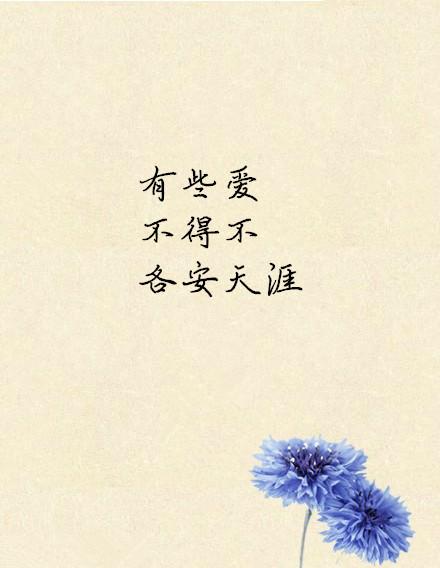 有些爱
不得不
各安天涯